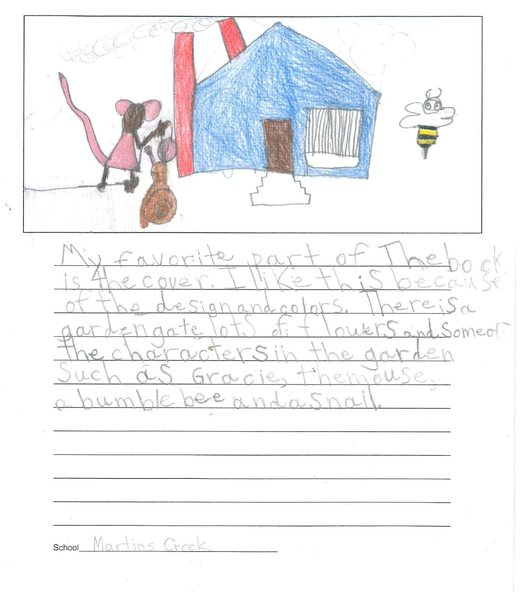 My favorite part of The book
is the cover. I like this because
of the design and colors. There is a
garden gate lots of flowers and some of
the characters in the garden
Such as Gracie, the mouse,
a bumble bee and a snail.
School Martins Creek